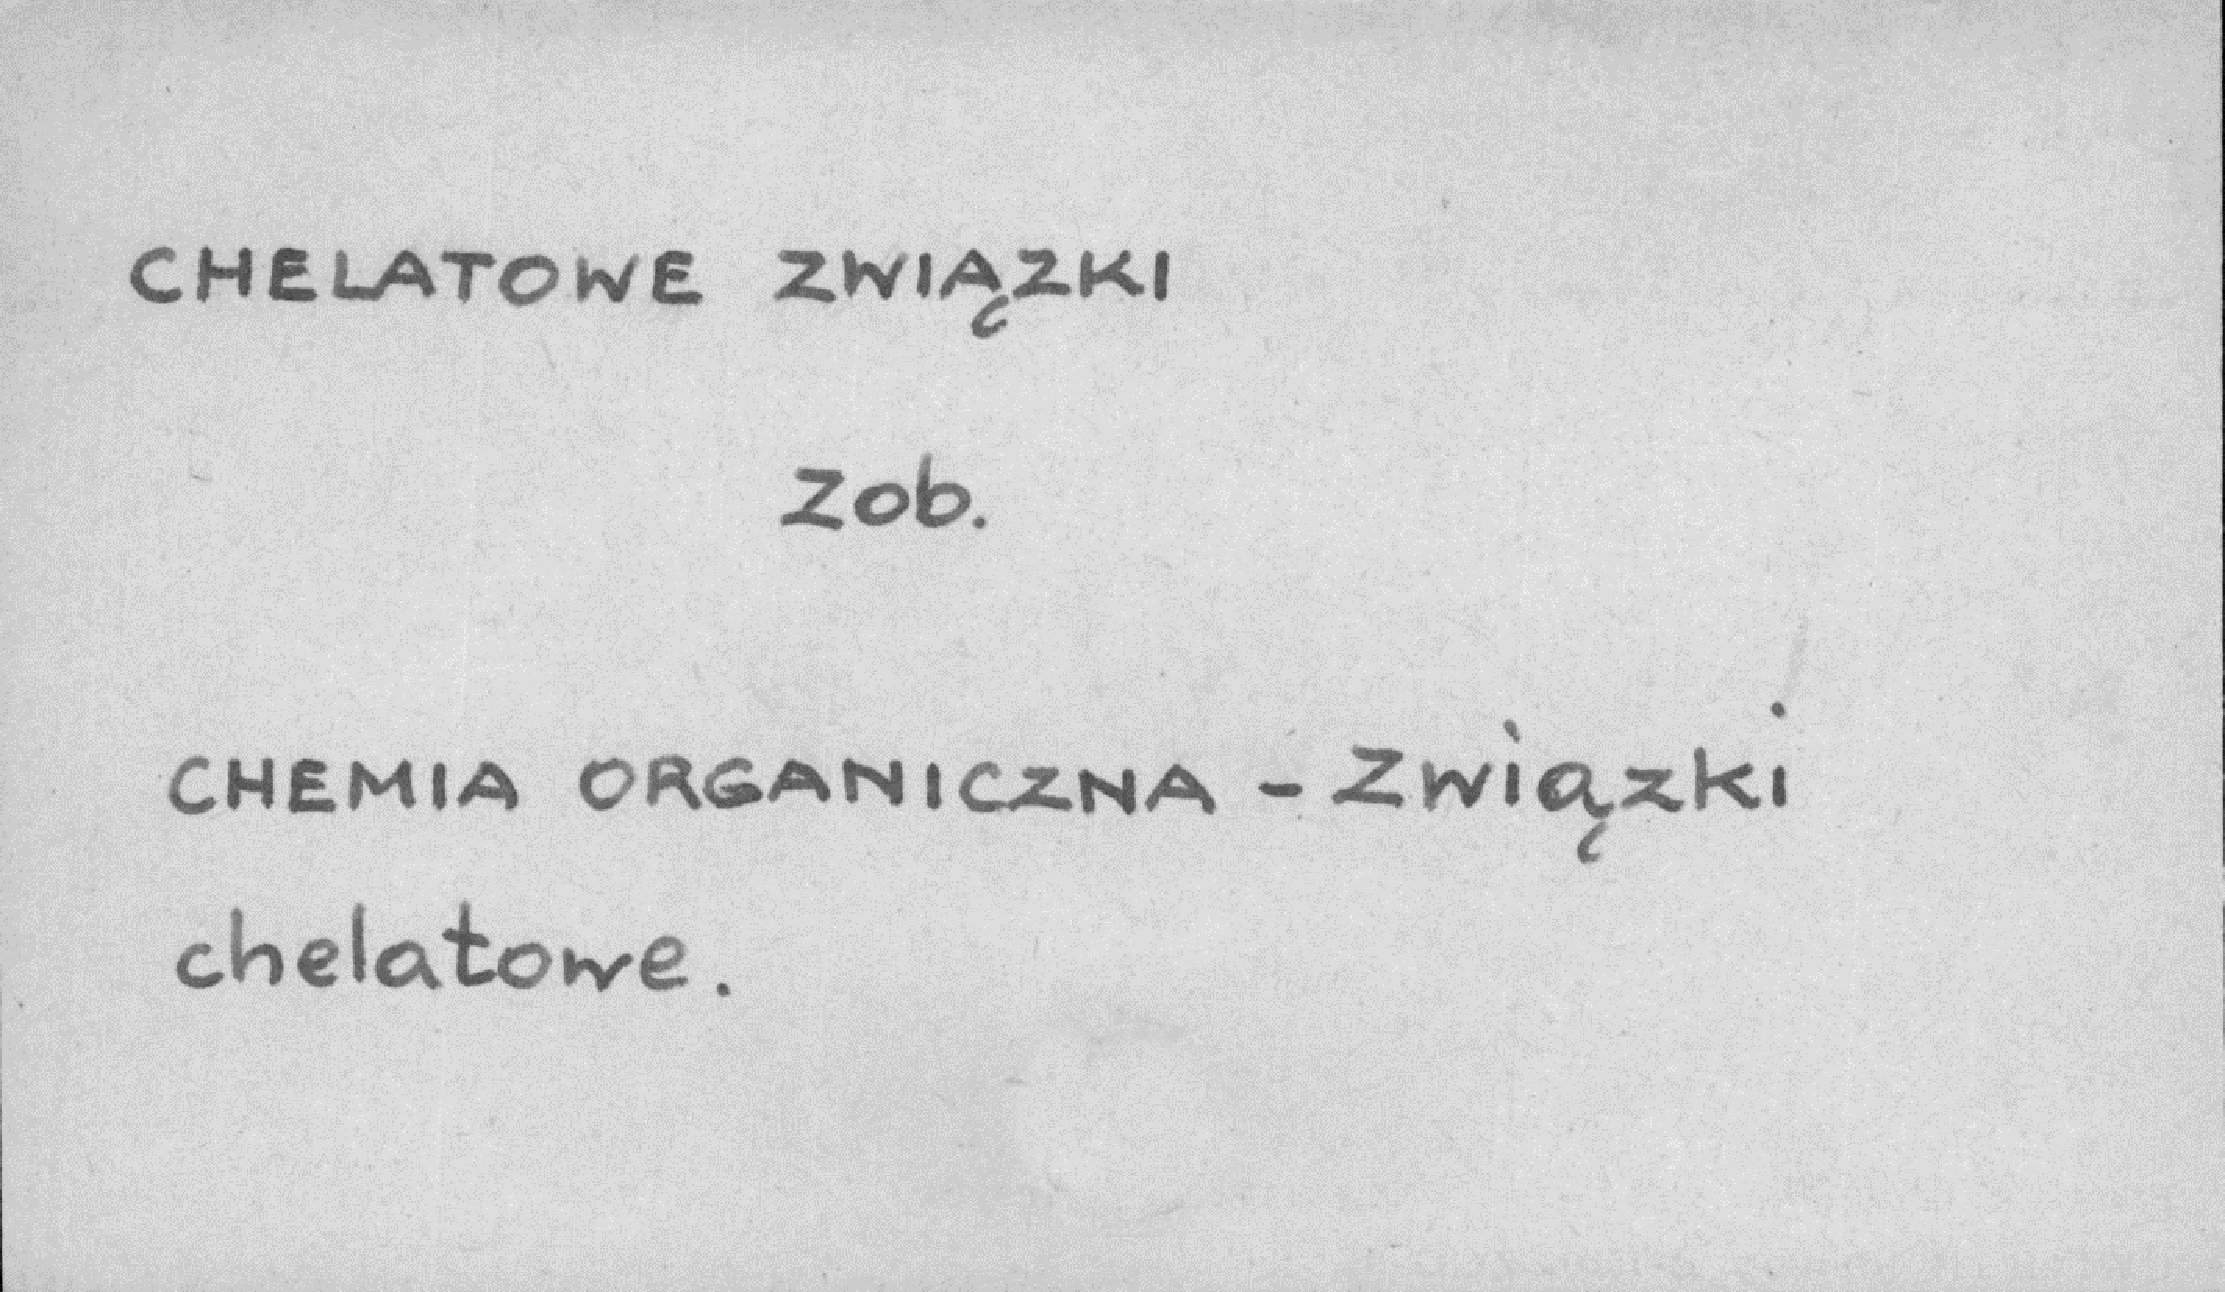 CHELATOWE ZWIĄZKI
Zob.
CHEMIA ORGANICZNA - Związki
chelatowe.